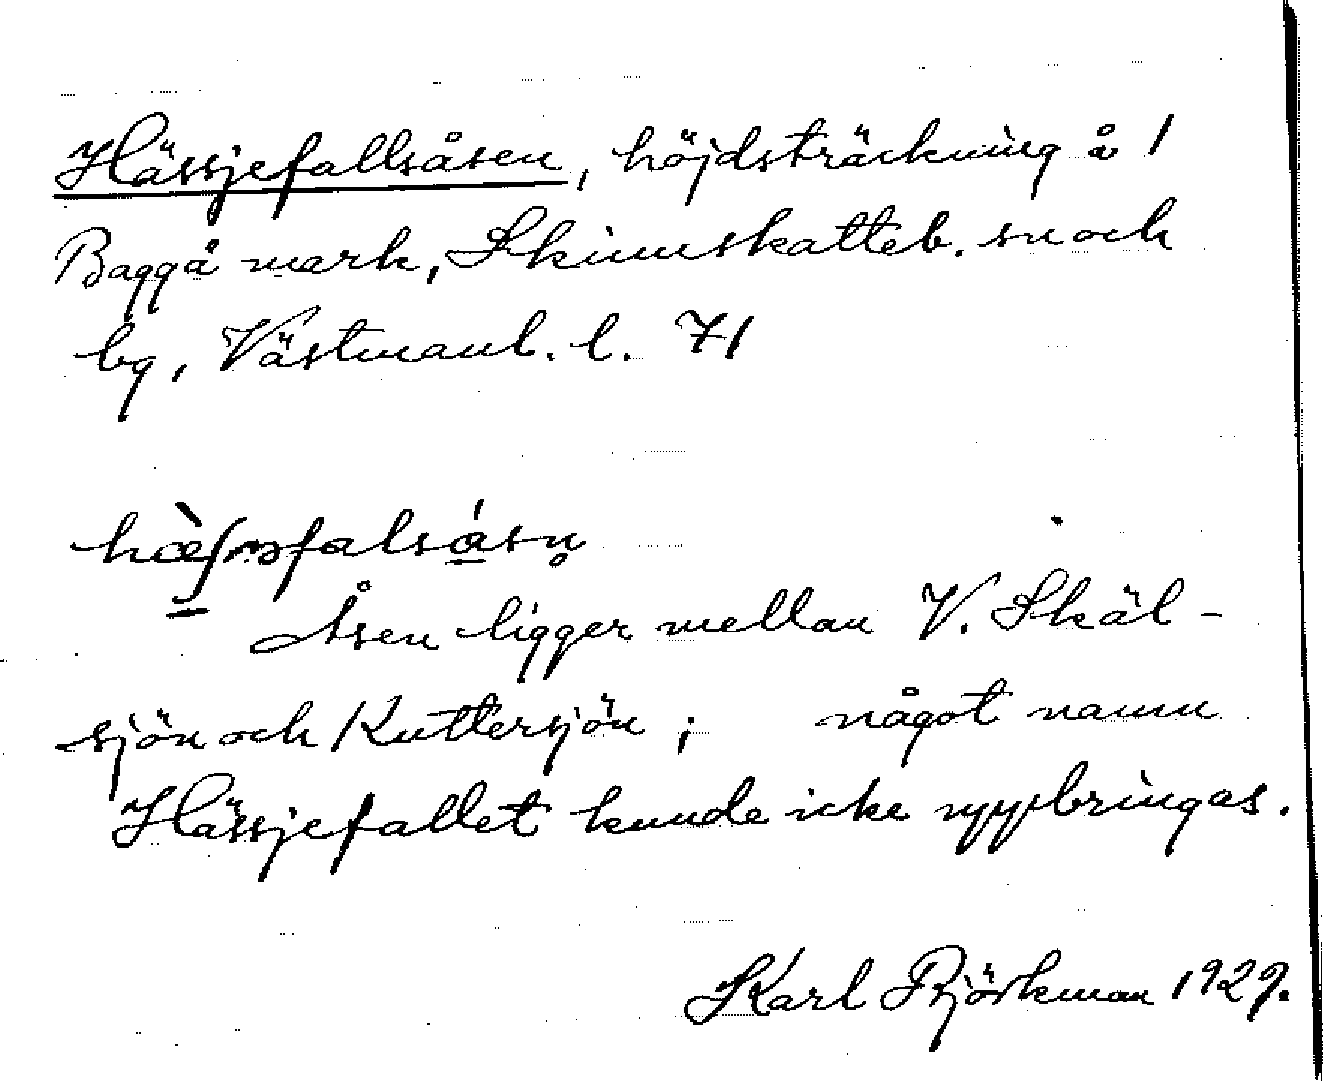 Hässjefallsåsen, höjdsträckning å 1
Baggå mark, Skinnskatteb. sn och
bg, Västmanl. l. 71
hæ̀ʃəfalsásn̥
Åsen ligger mellan V. Skäl-
sjön och Kuttersjön; något namn
Hässjefallet kunde icke uppbringas.
Karl Björkman 1929.